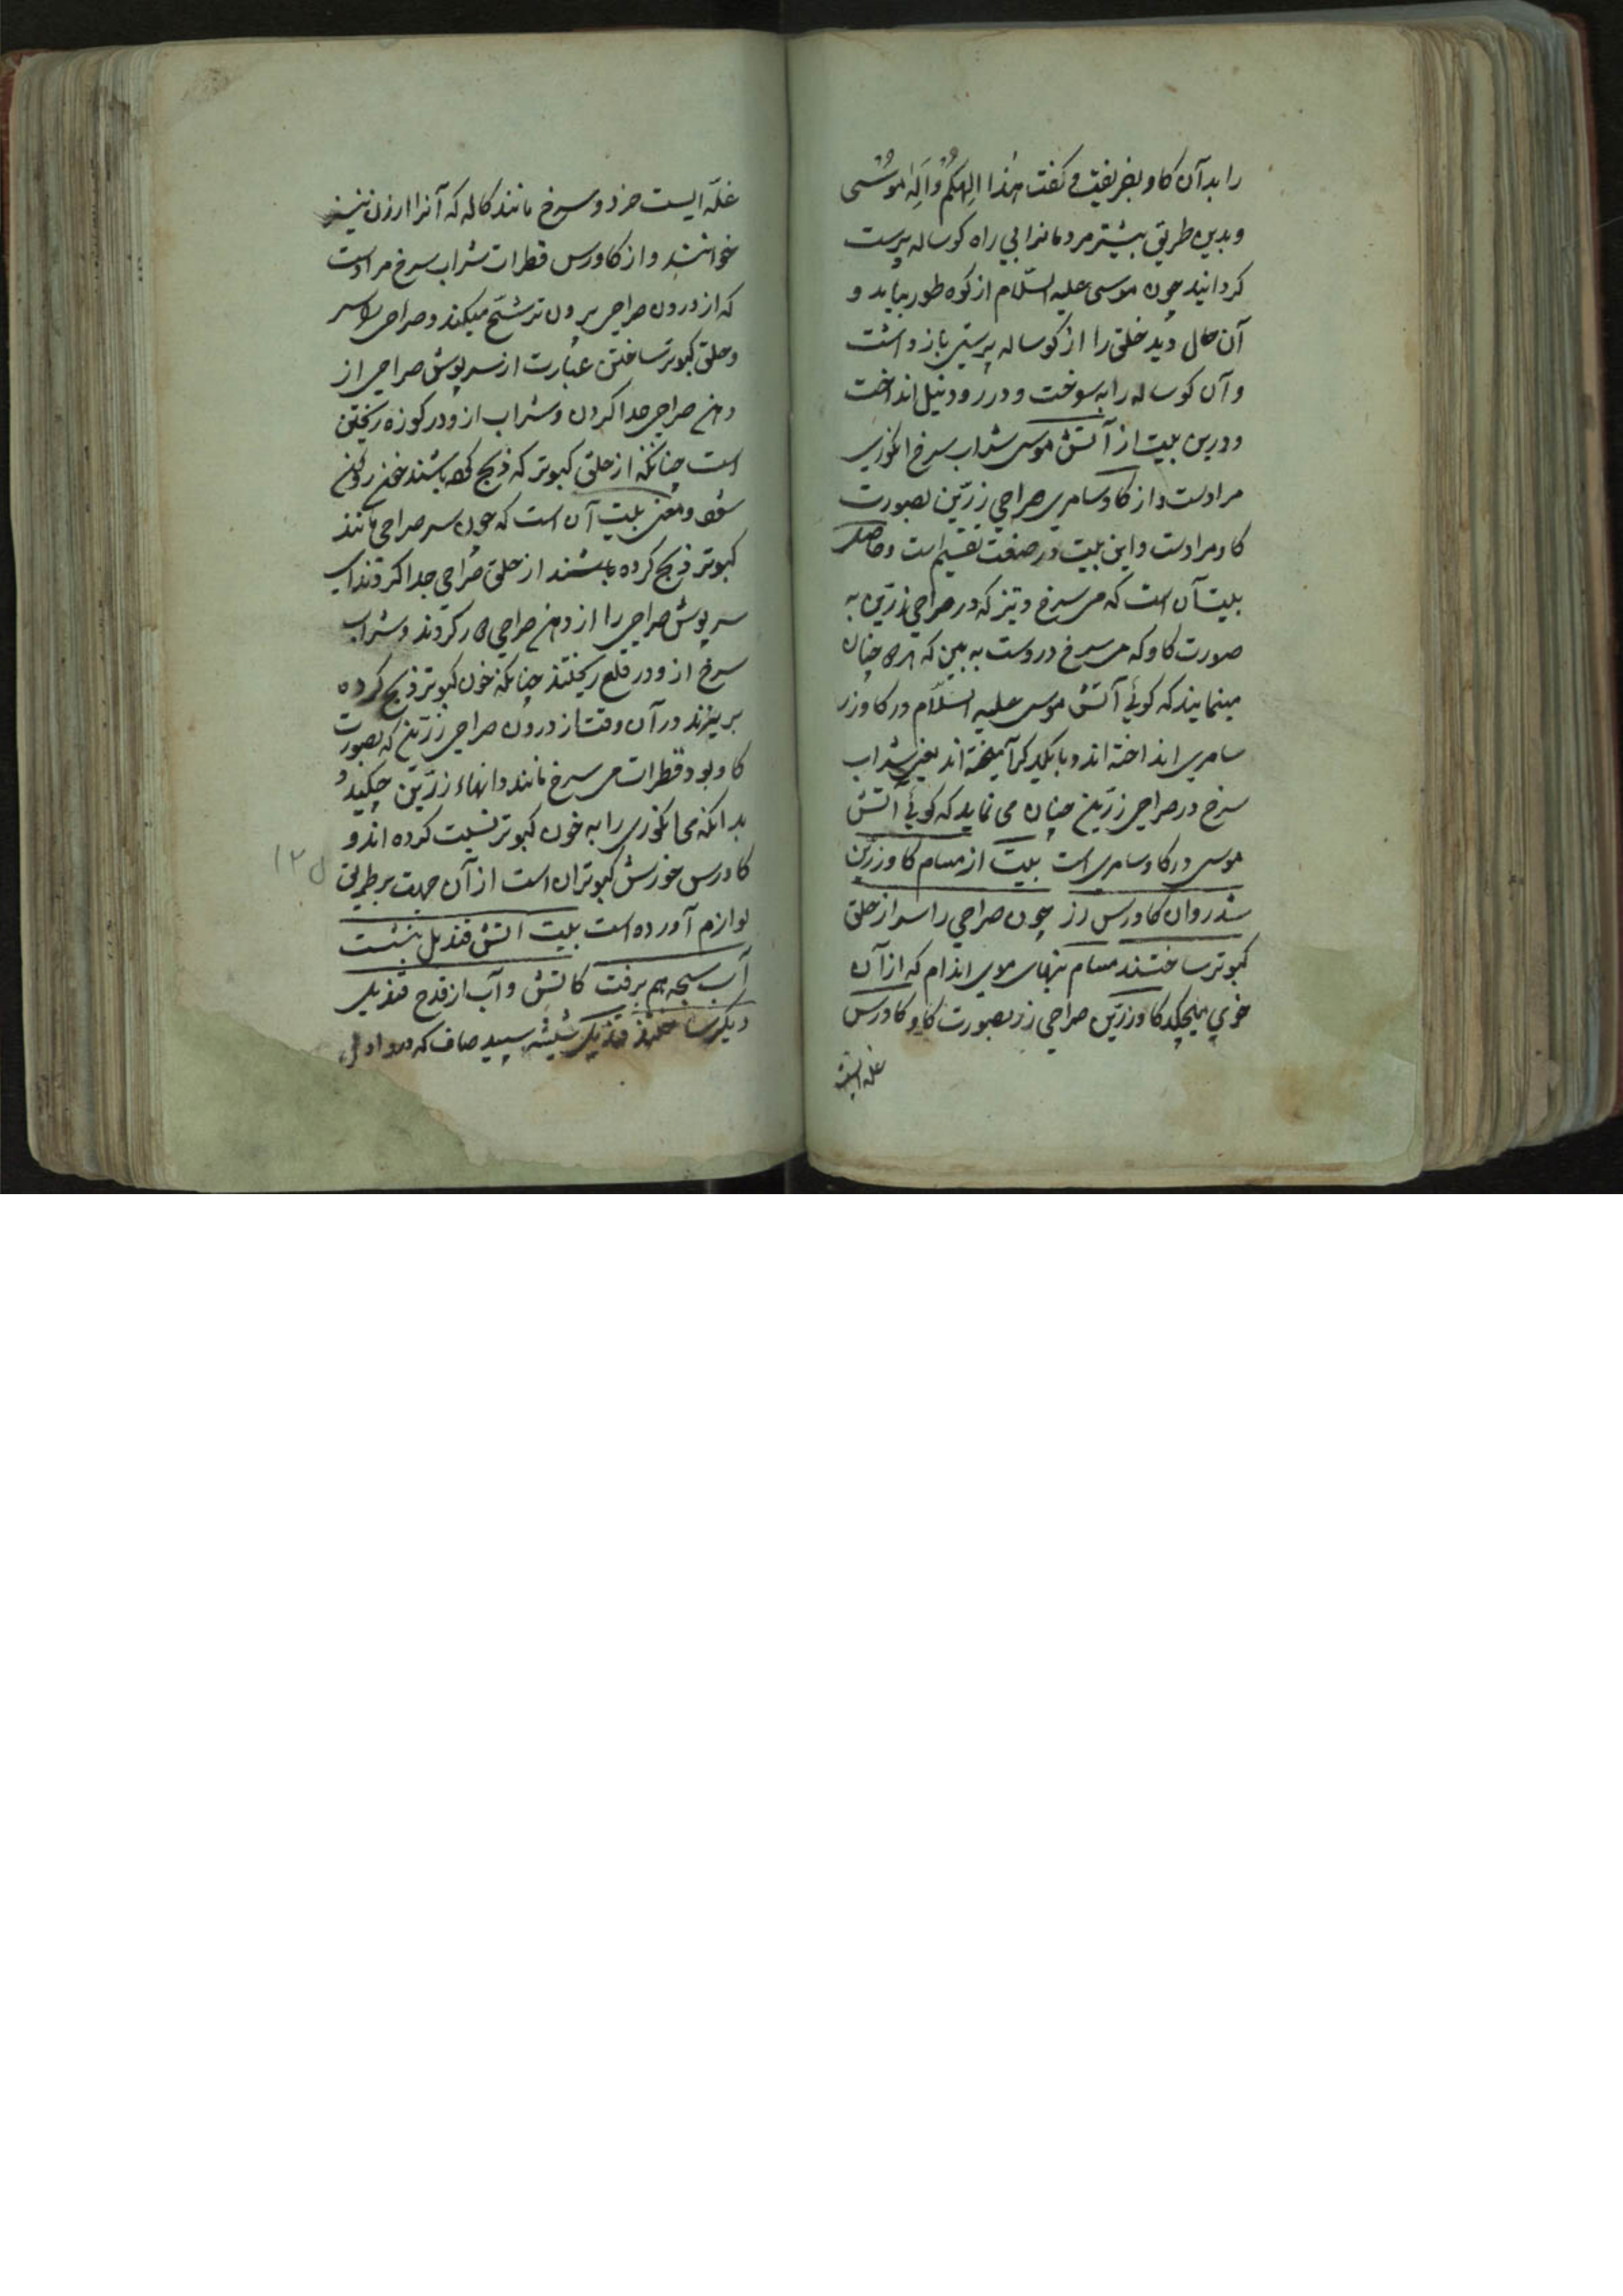 را بدآن کاو بفریفت و کفت هٰذا اِلٰهکُم وَاِلٰه مُوسٰی
و بدین طریق بیشتر مردمانرا بی راه کوساله پرست
کردانید چون موسی علیه السّلام از کوه طور بیاید و
آن حال دید خلق را از کوساله پرستی باز داشت
و آن کوساله را به سوخت و در رود نیل انداخت
و درین بیت از آتش موسی شراب سرخ انکوری
مرادست و از کاو سامری صراحی زرّین بصورت
کاو مرادست و این بیت در صنعت تقسیم است و حاصل
بیت آن است که می سرخ و تیز که در صراحی زرّین به
صورت کاو که می سرخ دروست به بین که چنان
مینمایند که کوئی آتش موسی علیه السّلام در کاو زر
سامری انداخته اند و با یکدیکر آمیخته اند یعنی شراب
سرخ در صراحی زرّین چنان می نماید که کوئی آتش
موسی در کاو سامری است بیت از مسام کاو زرّین
شد روان کاورس زر چون صراحی را سر از حلق
کبوتر ساختند مسام بنهای موی اندام که از آن
خوی میچکد کاو زرّین صراحی زر بصورت کاو و کاورس
غله ایست
غلّه ایست خرد و سرخ مانند کاله که آنرا ارزن نیز
خوانند و از کاورس قطرات شراب سرخ مرادست
که از درون صراحی برون ترشّح میکند و صراحی را سر
و حلق کبوتر ساختن عبارت از سرپوش صراحی از
دهن صراحی جدا کردن و شراب ازو در کوزه ریختن
است چنانکه از حلق کبوتر که ذبح کرده باشند خون روان
شود و معنی بیت آن است که چون سر صراحی مانند
کبوتر ذبح کرده باشند از حلق صراحی جدا کردند ای
سرپوش صراحی را از دهن صراحی دور کردند و شراب
سرخ ازو در قدح ریختند چنانکه خون کبوتر ذبح کرده
بریزند در آن وقت از درون صراحی زرّین که بصورت
کاو بود قطرات می سرخ مانند دانهاء زرّین چکید و
بدانکه می انکوری را به خون کبوتر نسبت کرده اند و
کاورس خورش کبوتران است از آن جهت بر طریق
لوازم آورده است بیت آتش قندیل بنشست
آب سبحه هم برفت کاتش و آب از قدح قندیل
دیکر ساختند قندیل شیشه سپید صاف که درو
۱۲۵